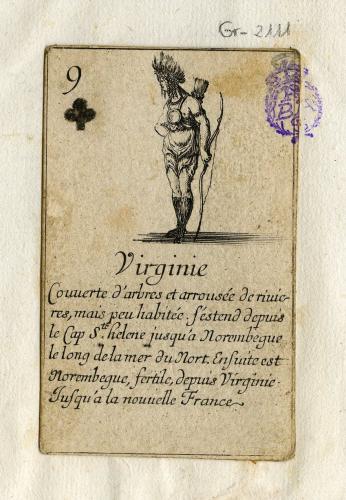 Gr-2111
9
B
Virginie
Couverte d'arbres et arrousée de rivie-
res, mais peu habitée. s'estend depuis
le Cap Ste. helene jusqu'a Norembegue
le long de la mer du Nort. Ensuite est
Norembegue, fertile, depuis Virginie
Jusqu'a la nouuelle France